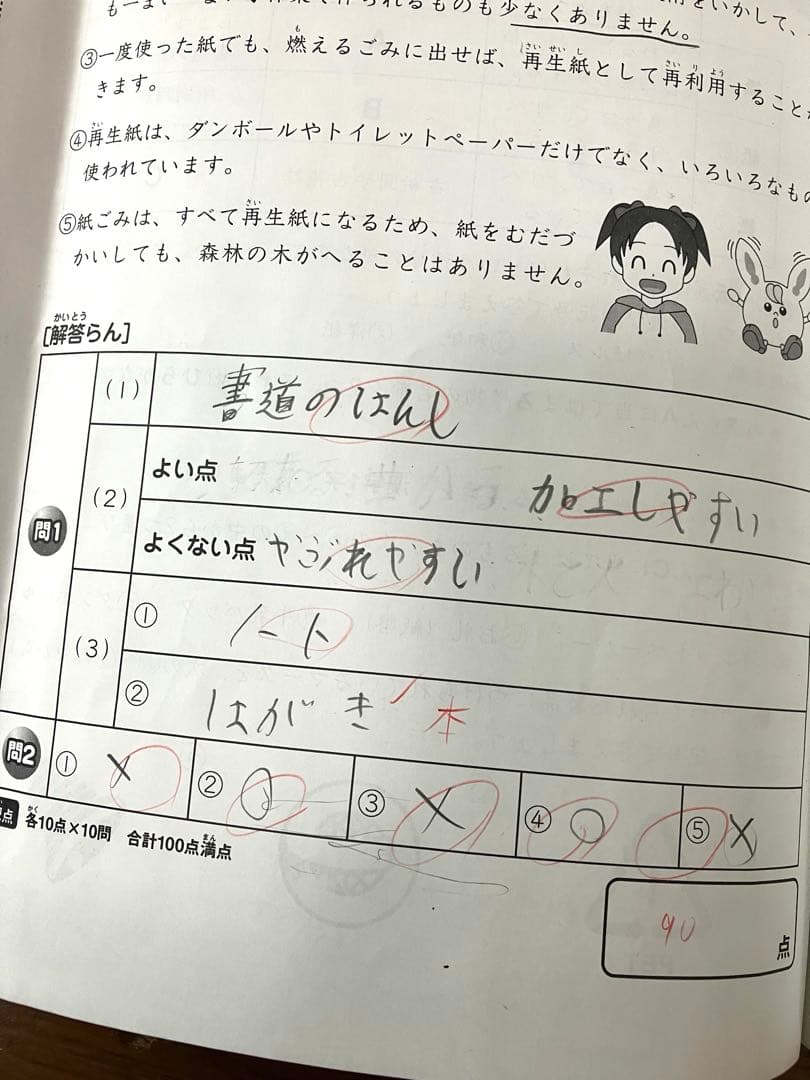 少なくありません。
をいかして、
③一度使った紙でも、燃えるごみに出せば、再生紙として再利用すること
きます。
④再生紙は、ダンボールやトイレットペーパーだけでなく、いろいろなもの
使われています。
⑤紙ごみは、すべて再生紙になるため、紙をむだづ
かいしても、森林の木がへることはありません。
[解答らん]
問1
(1) 書道のはんし
(2) よい点 加工しやすい
よくない点 やぶれやすい
(3) ① ノート
② はがき 本
問2 ① × ② ○ ③ × ④ ○ ⑤ ×
各10点×10問 合計100点満点
90 点